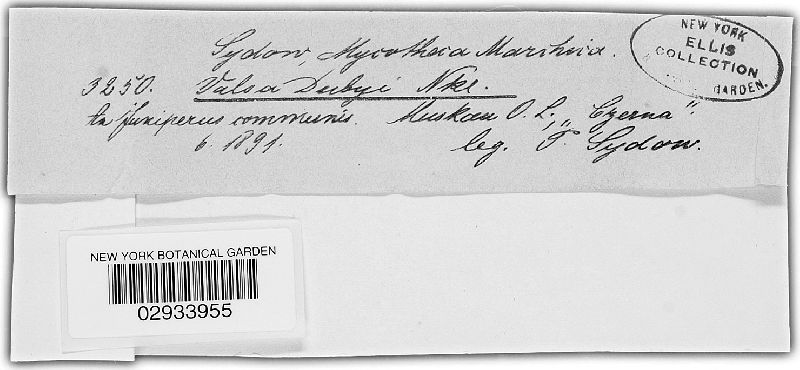 Sydow, Mycotheca Marchica.
3250. Valsa Dubyi Nke.
In Juniperus communis. Muskau O. L., „Czerna".
6. 1891. leg. P. Sydow.
NEW YORK
ELLIS
COLLECTION
GARDEN.
NEW YORK BOTANICAL GARDEN
02933955